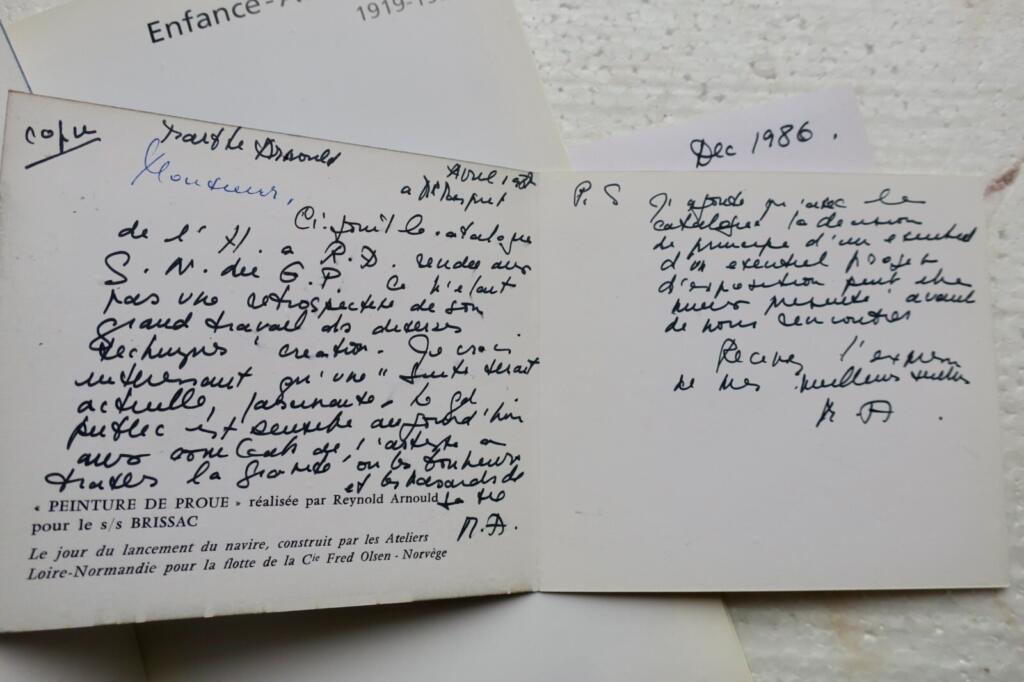 Enfance-A
1919-19
Dec 1986.
copie
Marthe Arnould
Monsieur,
Avril
a
Ci-joint le catalogue
de l'H. a R.D. rendu aux
S. N. du G.P. Ce n'étant
pas une retrospective de son
grand travail des diverses
techniques création. Je crois
interessant qu'une "suite serait
actuelle, passionnante. Le gd
public est sensible aujourd'hui
aux combats de l'artiste a
travers la gravité ou les bonheurs
et les hasards de
la vie
M.A.
« PEINTURE DE PROUE » réalisée par Reynold Arnould
pour le s/s BRISSAC
Le jour du lancement du navire, construit par les Ateliers
Loire-Normandie pour la flotte de la Cie Fred Olsen - Norvège
P.S J'ajoute qu'avec le
catalogue la decision
de principe d'un eventuel
d'un eventuel projet
d'exposition peut etre
mieux avant
de nous rencontrer
Recevez l'expression
de mes meilleurs
M A.